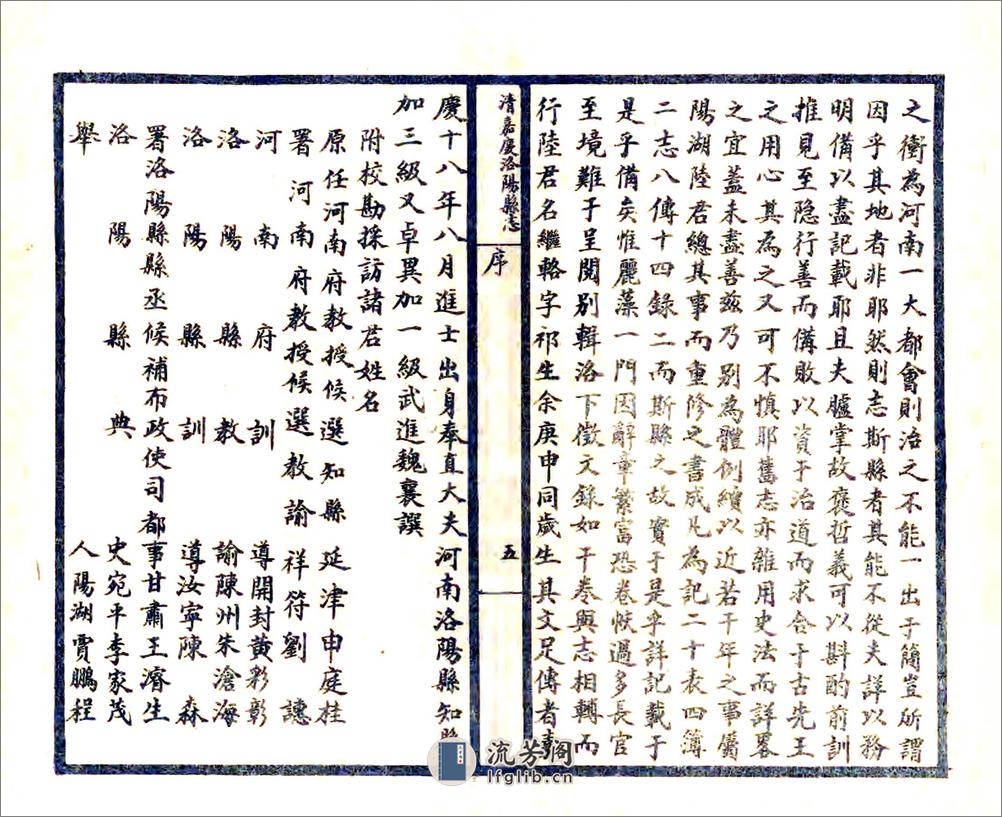 之衝為河南一大都會則治之不能一出于簡豈所謂
因乎其地者非耶然則志斯縣者其能不從夫詳以務
明備以盡記載耶且夫臚掌故褒哲義可以斟酌前訓
推見至隐行善而備敗以資于治道而求合于古先王
之用心其為之又可不慎耶舊志亦雜用史法而詳畧
之宜蓋未盡善兹乃別為體例續以近若干年之事屬
陽湖陸君總其事而重修之書成凡為記二十表四簿
二志八傳十四錄二而斯縣之故實于是乎詳記載于
是乎備矣惟麗藻一門因辭章繁富恐卷帙過多長官
至境難于呈閱別輯洛下徵文錄如干卷與志相輔而
行陸君名繼輅字祁生余庚申同歲生其文足傳者嘉
清嘉慶洛陽縣志
序
五
慶十八年八月進士出身奉直大夫河南洛陽縣知縣
加三級又卓異加一級武進魏襄譔
附校勘採訪諸君姓名
原任河南府教授候選知縣 延津申庭桂
署河南府教授候選教諭 祥符劉譓
河南府訓導開封黃彩彰
洛陽縣教諭陳州朱滄海
洛陽縣訓導汝寧陳森
署洛陽縣縣丞候補布政使司都事甘肅王濬生
洛陽縣典史宛平李家茂
舉人陽湖賈鵬程
流芳阁
lfglib.cn